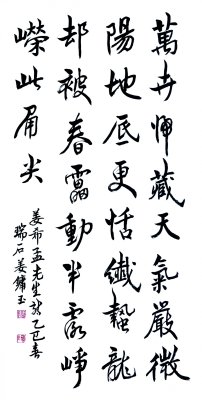 萬卉帰藏天氣嚴微
陽地底更恬纖蟄龍
却被春雷動半露崢
嶸此角尖
姜希孟先生詩乙巳春
瑞石姜鏞玉